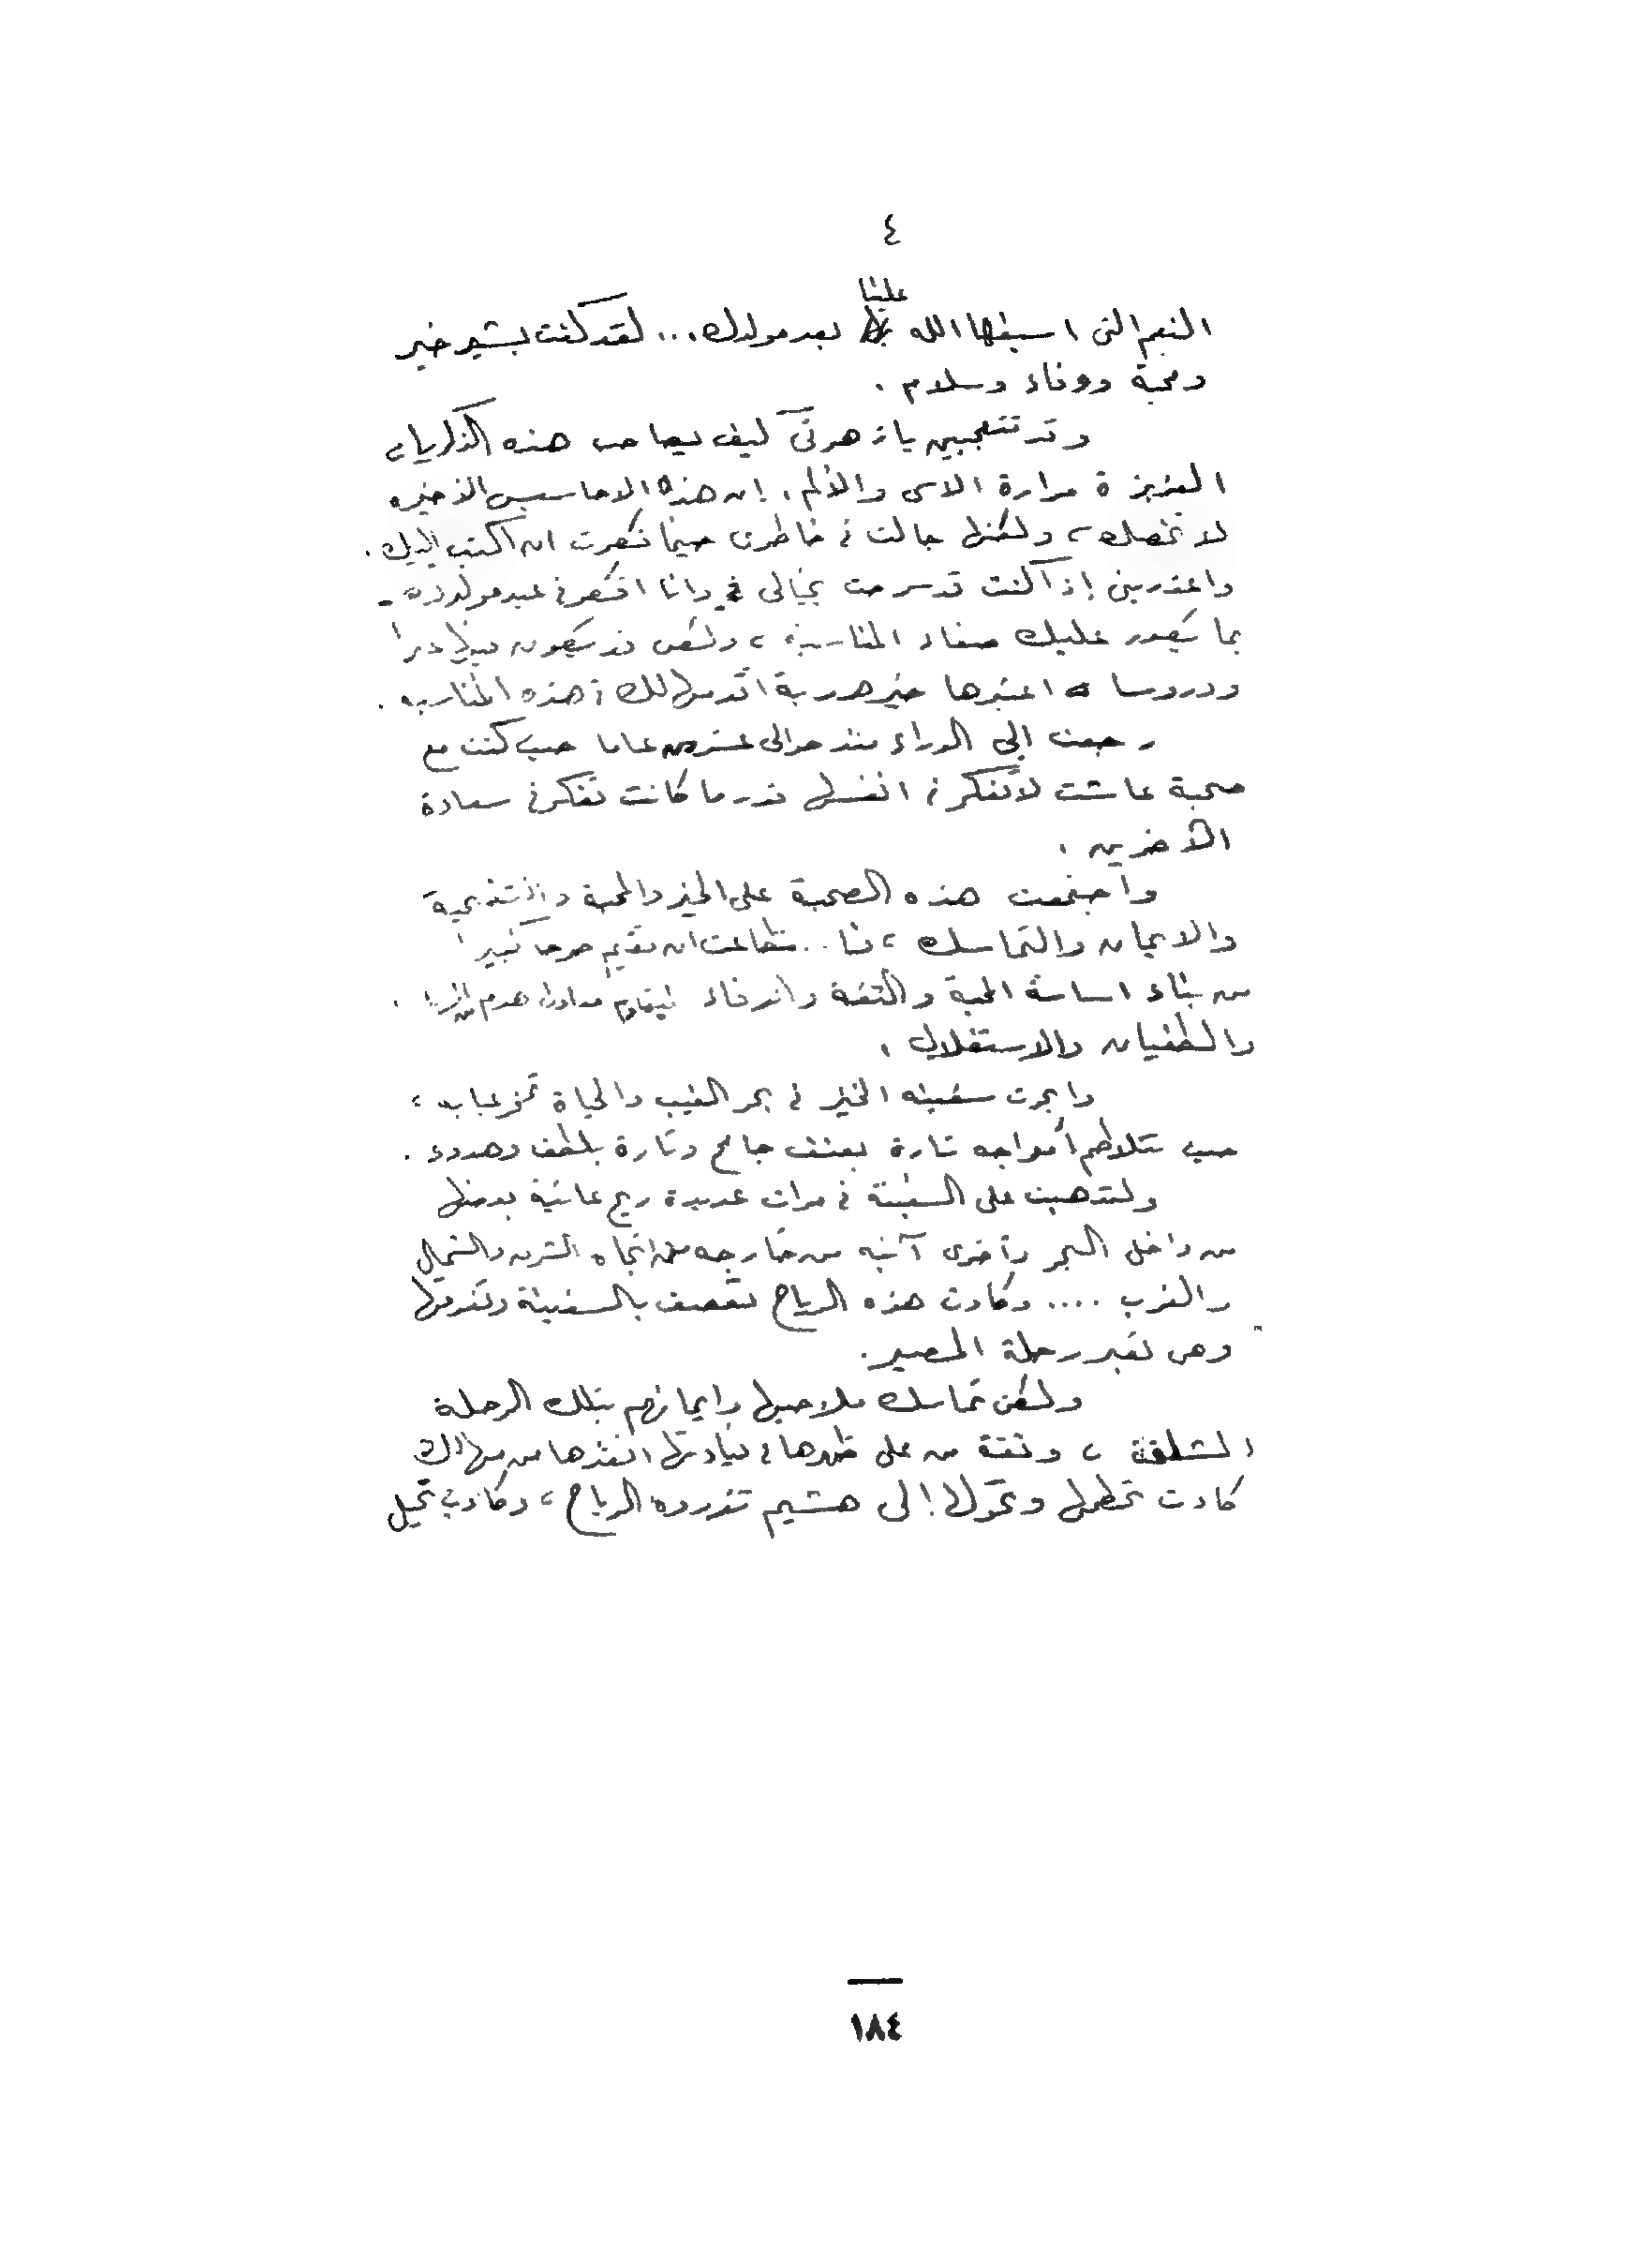 ٤
علينا
النعم التى اسبغها الله بعد مولدك... لقد كنت بشير خير
ومحبة ووفاء وسلام .
وقد تتعجبين يا زهرتى كيف يصاحب هذه الذكريات
العزيزة مرارة الاسى والألم ، إن هذه الاحاسيس الأخيره
لا تخصك ، ولكنها جالت فى خاطرى حينما فكرت ان اكتب إليك .
واعذرينى إذا كنت قد سرحت بخيالى وانا افكر فى عيد مولدك -
بما يكدر عليك صفاء المناسبة ، ولكن قد يكون فيها عبرا
ودروسا اعتبرها خير هدية اقدمها لك فى هذه المناسبه .
رجعت إلى الوراء منذ حوالى عشرين عاما حيث كنت مع
صحبة عاشت لا تفكر فى انفسها قدر ما كانت تفكر فى سعادة
الآخرين .
واجتمعت هذه الصحبة على الخير والمحبة والتضحية
والايمان والتماسك ، فاستطاعت ان تقيم صرحا كبيرا
من بناء اساسة المحبة والثقة والوفاء ليقاوم معاول هدم
والطغيان والاستغلال .
وابحرت سفينه الخير فى بحر الغيب والحياة تمخر عبابه ،
حيث تتلاطم أمواجه تارة بعنف جامح وتارة بلطف وهدوء .
ولقد هبت على السفينة فى مرات عديدة ريح عاتية بعضها
من داخل البحر وأخرى آتيه من خارجه من اتجاه الشرق والشمال
والغرب .... وكادت هذه الرياح تعصف بالسفينة وتغرقها
وهى تعبر رحلة المصير .
ولكن تماسك ملاحيها وايمانهم بتلك الرحلة
الشاقة ، وثقة من على ظهرها فى قيادتها انقذها من مهالك
كادت تحطمها وتحولها إلى هشيم تذروه الرياح ، وكادت تحيل
١٨٤